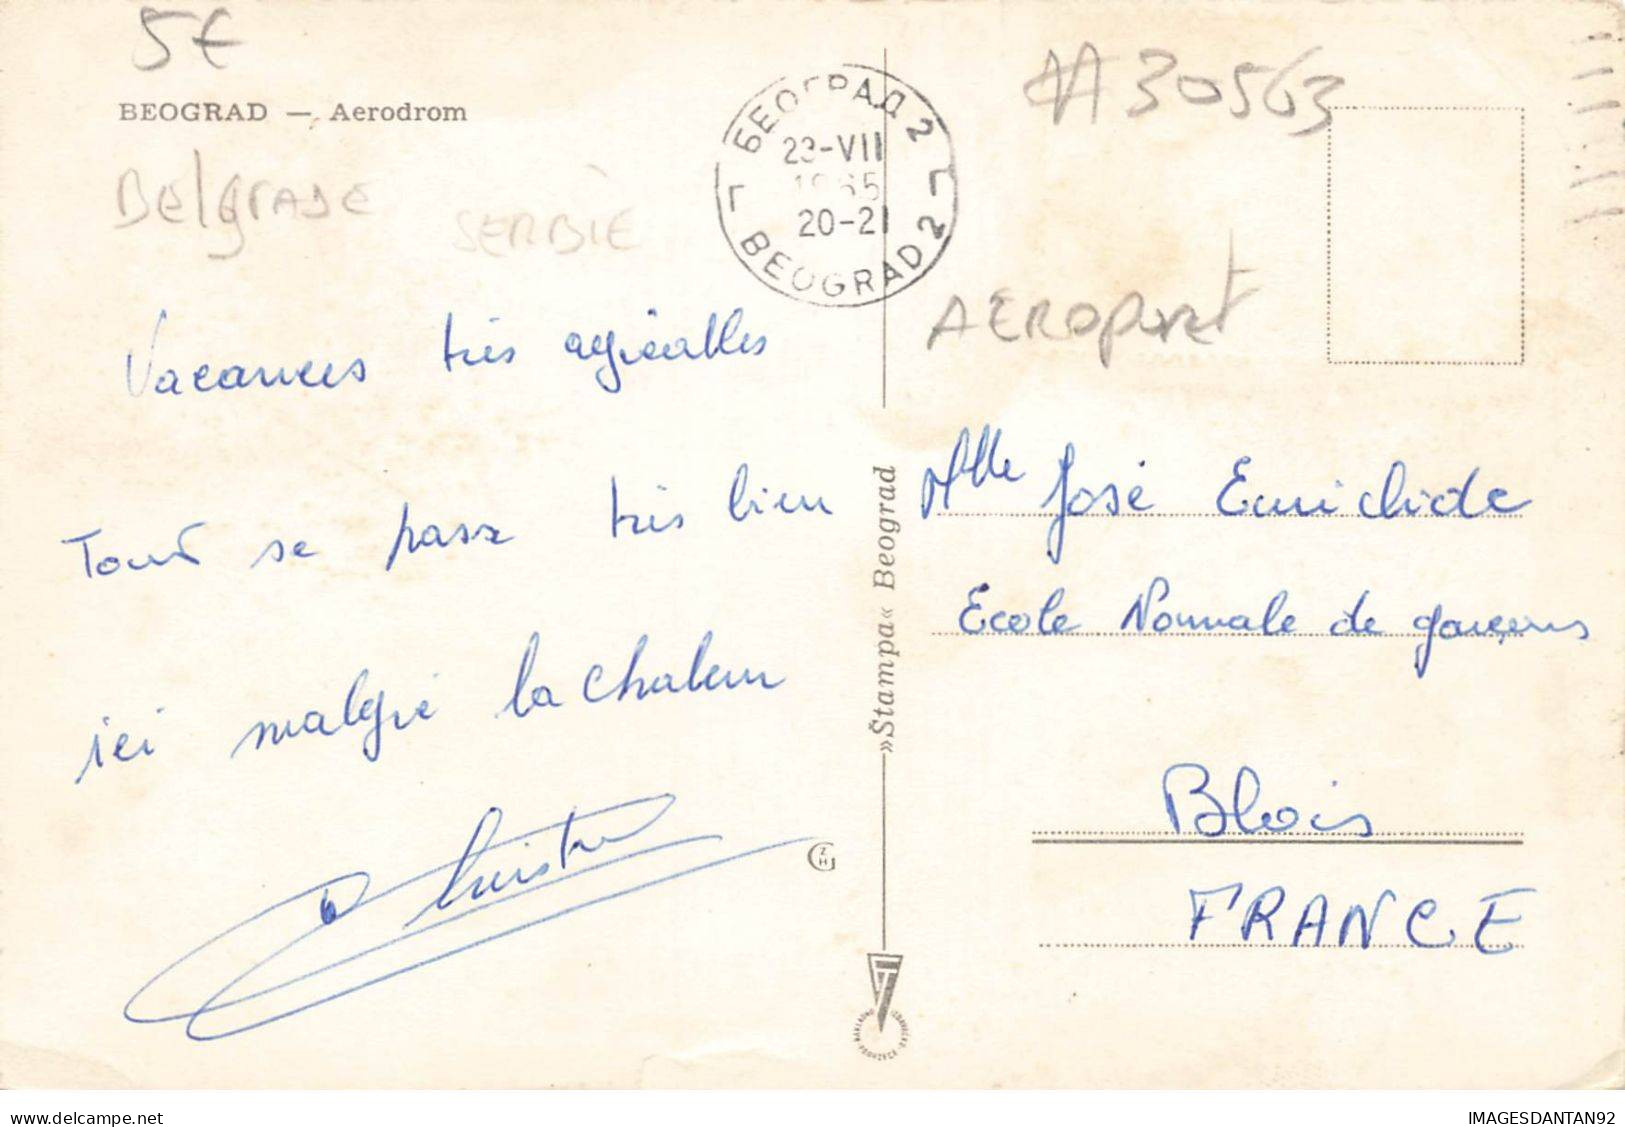 5€
BEOGRAD — Aerodrom
Belgrade
SERBIE
БЕОГРАД 2
23-VII
1965
20-21
BEOGRAD 2
AA 30563
AEROPORT
Vacances très agréables
Tout se passe très bien
ici malgré la chaleur
»Štampa« Beograd
Mlle José
Ecole Normale de garçons
Blois
FRANCE
www.delcampe.net
IMAGESDANTAN92